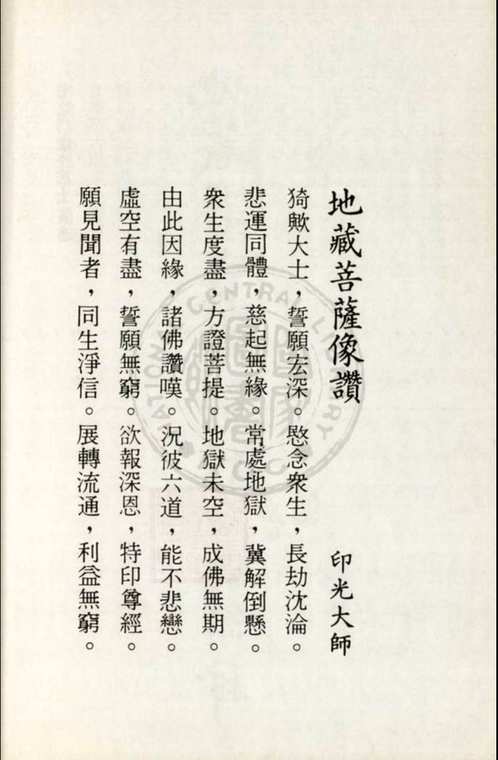 地藏菩薩像讚
印光大師
猗歟大士，誓願宏深。愍念眾生，長劫沈淪。
悲運同體，慈起無緣。常處地獄，冀解倒懸。
眾生度盡，方證菩提。地獄未空，成佛無期。
由此因緣，諸佛讚嘆。況彼六道，能不悲戀。
虛空有盡，誓願無窮。欲報深恩，特印尊經。
願見聞者，同生淨信。展轉流通，利益無窮。
NATIONAL CENTRAL LIBRARY